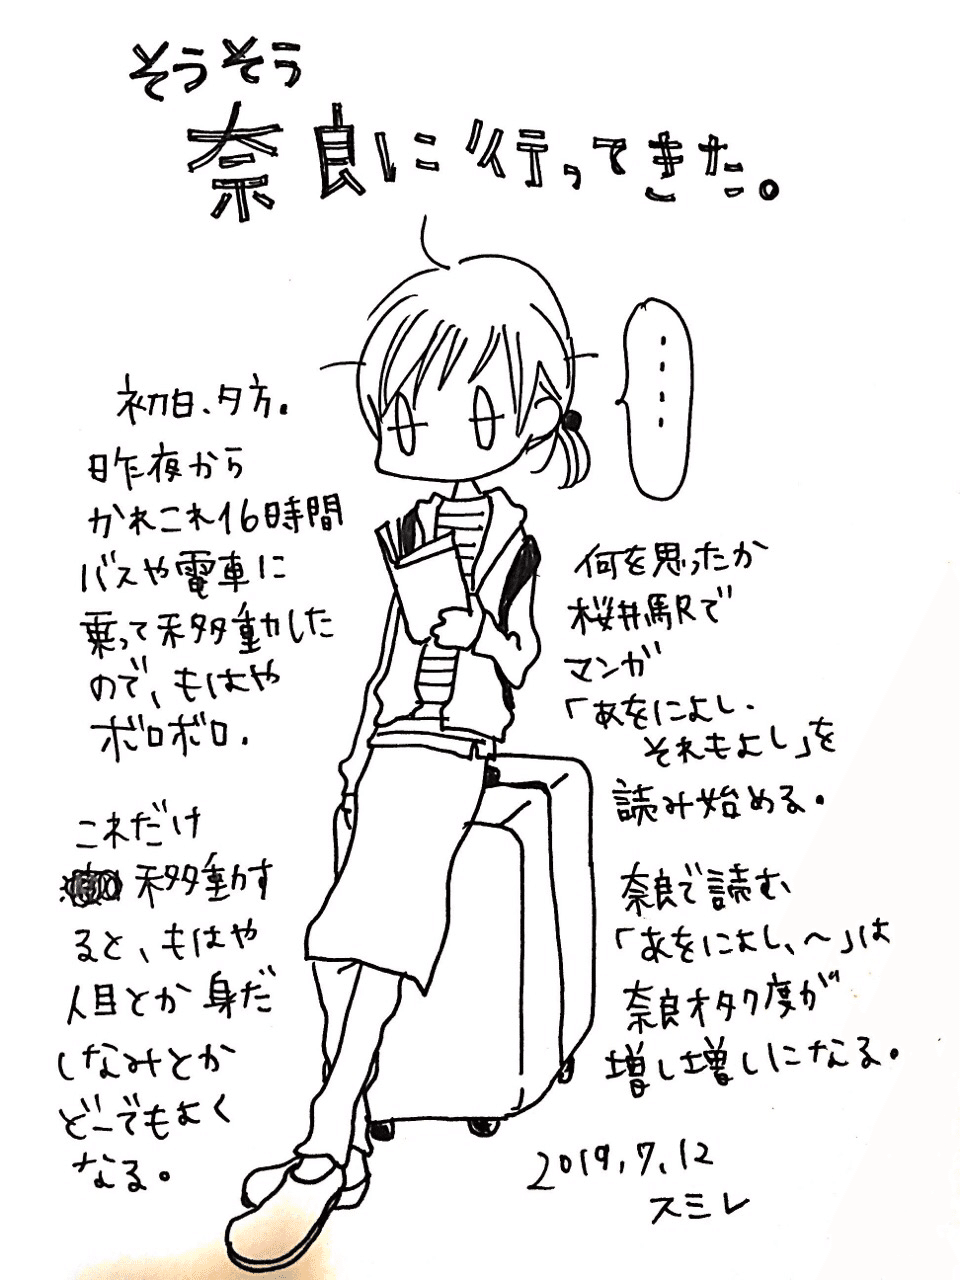 そうそう
奈良に行ってきた。
初日、夕方。
昨夜から
かれこれ16時間
バスや電車に
乗って移動した
ので、もはや
ボロボロ.
これだけ
移動す
ると、もはや
人目とか身だ
しなみとか
どーでもよく
なる。
・・・・・
何を思ったか
桜井駅で
マンガ
「あをによし、
それもよし」を
読み始める。
奈良で読む
「あをによし、～」は
奈良オタク度が
増し増しになる。
2019.7.12
スミレ